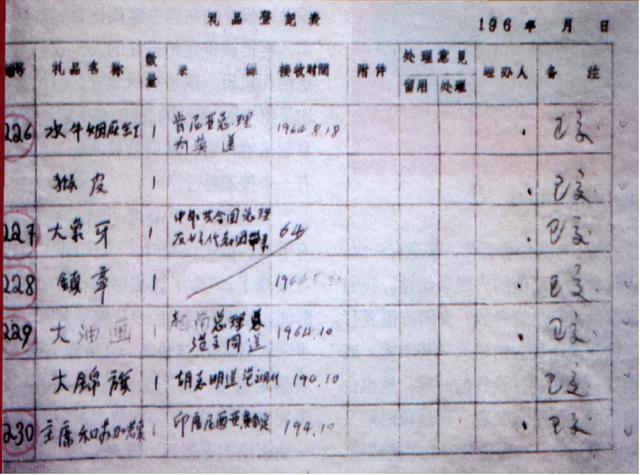 礼品登记表 196 年 月 日
编号 礼品名称 数量 来源 接收时间 附件 处理意见 留用 处理 经办人 备注
226 水牛烟灰缸 1 肯尼亚总理 1964.8.18 已交
皮 1 已交
227 大象牙 1 中非共合国总理 64 已交
友好代表团
228 1 已交
229 大油画 1 越南总理 1964.10 已交
范文同送
大锦旗 1 胡志明送 194.10 已交
230 主席和 1 印度尼西亚 194.10 已交